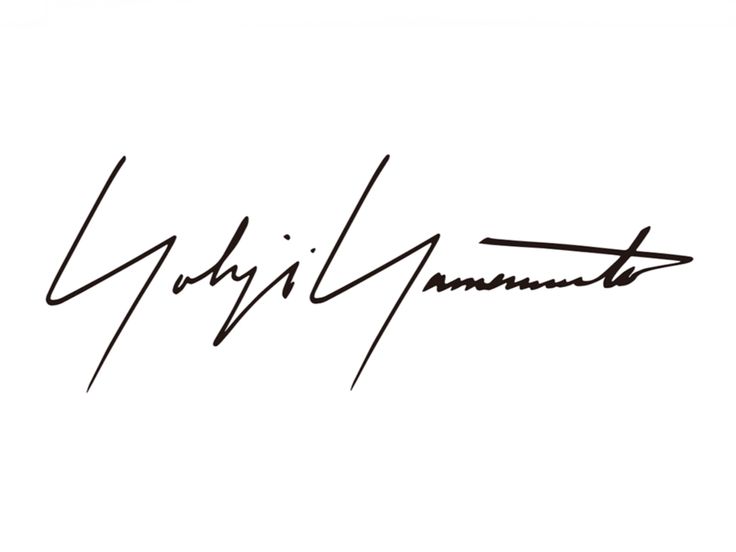 Yohji Yamamoto